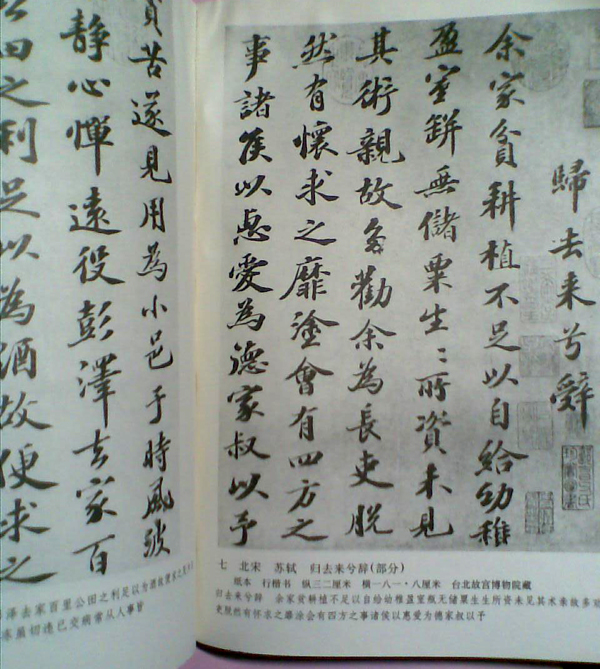 歸去来兮辭
余家貧耕植不足以自給幼稚
盈室缾無儲粟生〻所資未見
其術親故多勸余為長吏脫
然有懷求之靡塗會有四方之
事諸侯以惠愛為德家叔以予
貧苦遂見用為小邑于時風波
靜心憚遠役彭澤去家百
公田之利足以為酒故便求之
七 北宋 苏轼 归去来兮辞(部分)
纸本 行楷书 纵三二厘米 横一八一·八厘米 台北故宫博物院藏
归去来兮辞 余家贫耕植不足以自给幼稚盈室瓶无储粟生生所资未见其术亲故多
吏脱然有怀求之靡涂会有四方之事诸侯以惠爱为德家叔以予
泽去家百里公田之利足以为酒故便求之
冻虽切违己交病尝从人事皆